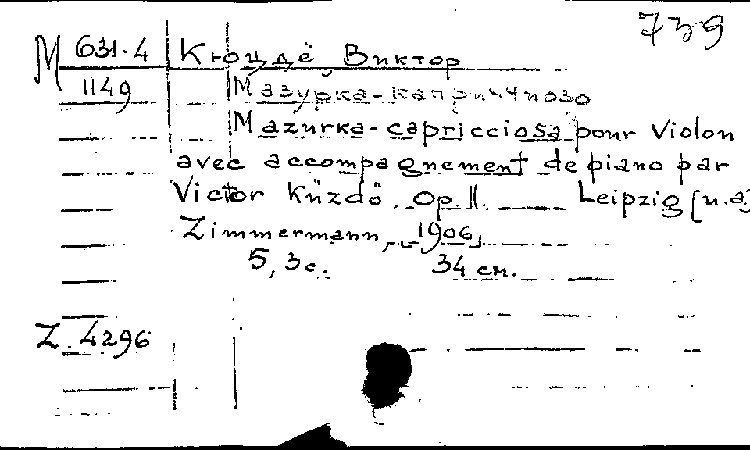 739
М 631.4 Кюцдё Виктор
1149 Мазурка-каприччиозо
Mazurka-capricciosa pour Violon
avec accompagnement de piano par
Victor Küzdö. Op. 11. Leipzig [u.a.]
Zimmermann, 1906,
5, 3 с. 34 см.
Z. 4296